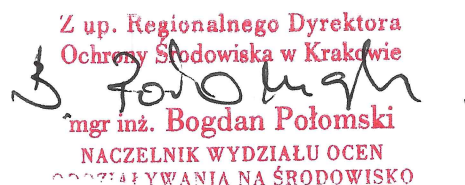 Z up. Regionalnego Dyrektora
Ochrony Środowiska w Krakowie
B Połomski
mgr inż. Bogdan Połomski
NACZELNIK WYDZIAŁU OCEN
ODDZIAŁYWANIA NA ŚRODOWISKO